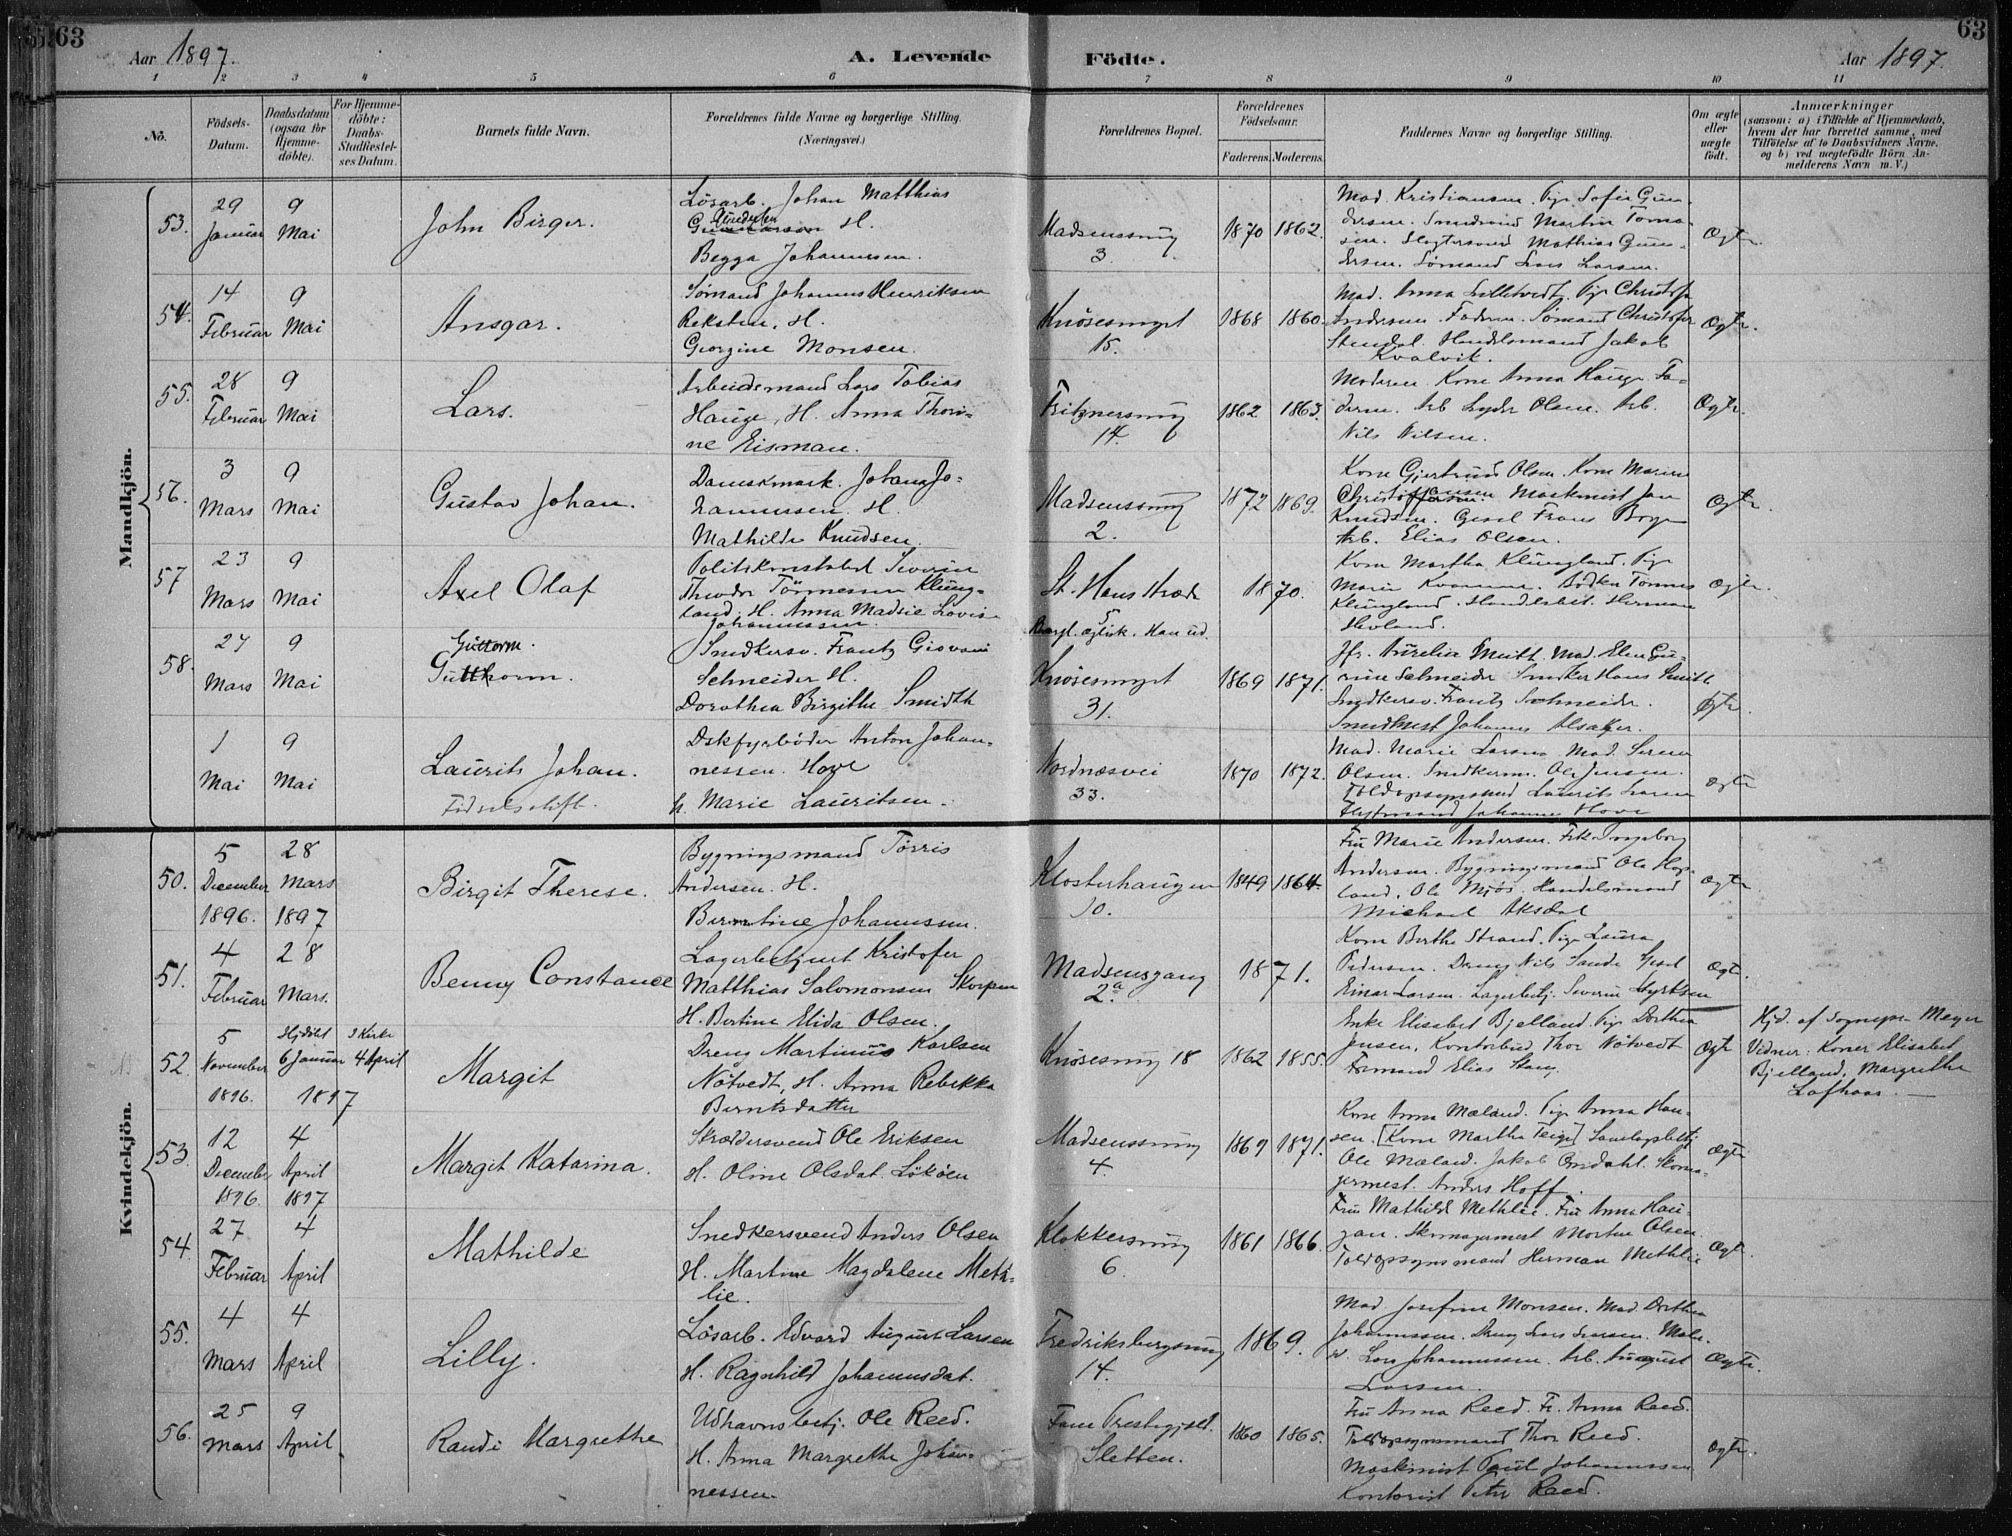 63
63
Aar 1897.
A. Levende
Födte.
Aar 1897.
1 2 3 4 5 6 7 8 9 10 11
Nô.
Födsels-Datum.
Daabsdatum (ogsaa for Hjemme-döbte).
For Hjemme-döbte: Daabs-Stadfestel-ses Datum.
Barnets fulde Navn.
Forældrenes fulde Navne og borgerlige Stilling. (Næringsvei.)
Forældrenes Bopæl.
Forældrenes Födselsaar.
Faderens. Moderens.
Faddernes Navne og borgerlige Stilling.
Om ægte eller uægte födt.
Anmærkninger
(saasom: a) i Tilfælde af Hjemmedaab,
hvem der har forrettet samme, med
Tilföielse af to Daabsvidners Navne,
og b) ved uægtefödte Börn An-
melderens Navn m. V.)
Mandkjön.
53.
29 Januar
9 Mai
John Birger.
Lösarb. Johan Matthias
Gundersen H.
Begga Johannessen.
Madsenssmug
3.
1870 1862.
Mad. Kristiansen. Pige Sofie Gun-
dersen. Smedsvend Martin Toma-
sen. Slagtersvend Mathias Gun-
dersen. Sømand Lars Larsen.
Ægte.
54.
14 Februar
9 Mai
Ansgar.
Sømand Johannes Henriksen
Reksten, H.
Georgine Monsen.
Knösesmuget
15.
1868 1860.
Mad. Anna Lilletvedt, Pige
Andersen. Faderen. Sømand Christofer
Stendal. Handelsmand Jakob
Kvalvik.
Ægte.
55.
28 Februar
9 Mai
Lars.
Arbeidsmand Lars Tobias
Hauge, H. Anna Thori-
ne Eisman.
Fritznersmug
14.
1862 1863.
Moderen Kone Anna Hauge. Fa-
deren. Arb Lyder Olsen. Arb.
Nils Nilsen.
Ægte.
56.
3 Mars
9 Mai
Gustav Johan.
Johan Jo-
hannessen. H.
Mathilde Knudsen.
Madsenssmug
2.
1872 1869.
Kone Gjertrud Olsen. Kone Maren
Maskinist Jan
Knudsen. Gesel Frans
Arb. Elias Olsen.
Ægte.
57
23 Mars
9 Mai
Axel Olaf
Politikonstabel Severin
Theodor Tönnessen Klung-
land. H. Anna Madsie Lovise
Johannessen.
St. Hans Stræde
5
1870.
Kone Martha Klungland. Pige
Marie Kvamme. Bödker Tönnes
Klungland. Handelsbet. Herman
Hevland.
Ægte.
58.
27 Mars
9 Mai
Guttorm.
Gutthorm.
Snedkersv. Frantz Giovani
Schneider H.
Dorothea Birgitte Smidth
Knösesmuget
31.
1869 1871.
Jfr. Aurelia Smitt. Mad. Elen Gu-
rine Schneider Snedker Hans Smith
Snedkersv. Frantz Schneider.
Johannes Alsaker.
Ægte.
1 Mai
9 Mai
Laurits Johan.
Födselsstift.
Dskfyrböder Anton Johan-
nessen. Hove
H. Marie Lauritsen.
Nordnæsvei
33.
1870 1872.
Mad. Marie Larsen Mad. Serena
Olsen. Snedkerm. Ole Jensen.
Toldopsynsmd Laurits Larsen
Johannes Hove
ægte
Kvindekjön.
50.
5 December 1896.
28 Mars 1897
Birgit Therese.
Bygningsmand Törris
Andersen. H.
Berntine Johannessen.
Klosterhaugen
10.
1849 1864.
Fru Marie Andersen. Frk Ingeborg
Andersen. Bygningsmand Ole Hop-
land. Ole Mjös. Handelsmand
Michael Aksdal
Ægte.
51.
4 Februar
28 Mars.
Benny Constance
Lagerbetjent Kristofer
Matthias Salomonsen Skorpen
H. Bertine Elida Olsen.
Madsensgang
2a.
1871.
Kone Berthe Strand. Pige Laura
Pedersen. Dreng Nils Sande Gesel
Einar Larsen. Lagerbetj. Severin Gyrtsen
Ægte.
52.
5 November 1896.
Hjdöbt 6 Januar 1897
I Kirke 4 April
Margit
Dreng Martinus Karlsen
Nötvedt, H. Anna Rebekka
Berntsdatter
Knösesmug 18
1862 1855.
Enke Elisabet Bjelland. Pige Dorthea
Jensen. Kontorbud Thor Nötvedt
Formand Elias Stang
Ægte
Hjd. af Sognepr. Meyer
Vidner: Koner Elisabet
Bjelland, Margrethe
Lofhaas.
53.
12 December 1896.
4 April 1897
Margit Katarina.
Skræddersvend Ole Eriksen
H. Oline Olsdat. Lököen
Madsenssmug
4.
1869 1871.
Kone Anna Mæland. Pige Anna Han-
sen. [Kone Martha Teige]
Ole Mæland. Jakob Skoma-
germest. Anders Hoff.
Ægte
54
27 Februar
4 April
Mathilde
Snedkersvend Anders Olsen
H. Martine Magdalene Meth-
lie.
Klokkersmug
6.
1861 1866.
Fru Mathilde Methlie. Fru Anna Hau-
gan. Skomagermest Morten Olsen
Toldopsynsmand Herman Methlie
Ægte.
55.
4 Mars
4 April
Lilly.
Lösarb. Edvard August Larsen
H. Ragnhild Johannesdat.
Fredriksbergsmug
14.
1869.
Mad Josefine Monsen. Mad Dorthea
Johannessen. Dreng Lars Larsen. Male-
r. Lars Johannessen. Arb. August
Larsen.
Ægte.
56.
25 Mars
9 April
Randi Margrethe
Udhavnsbetj. Ole Reed.
H. Anna Margrethe Johan-
nessen.
Fane Prestegjeld.
Sletten.
1860 1865.
Fru Anna Reed. Fr. Anna Reed.
Toldopsynsmand Thor Reed.
Maskinist Paul Johannessen
Kontorist Peter Reed.
Ægte.